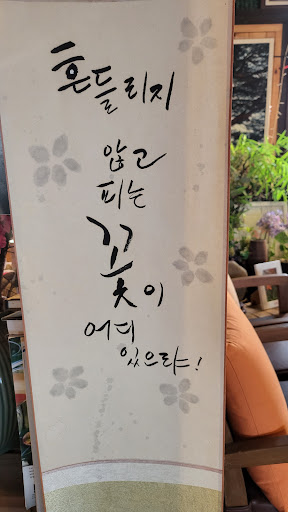 흔들리지
않고
피는
꽃이
어디
있으랴!